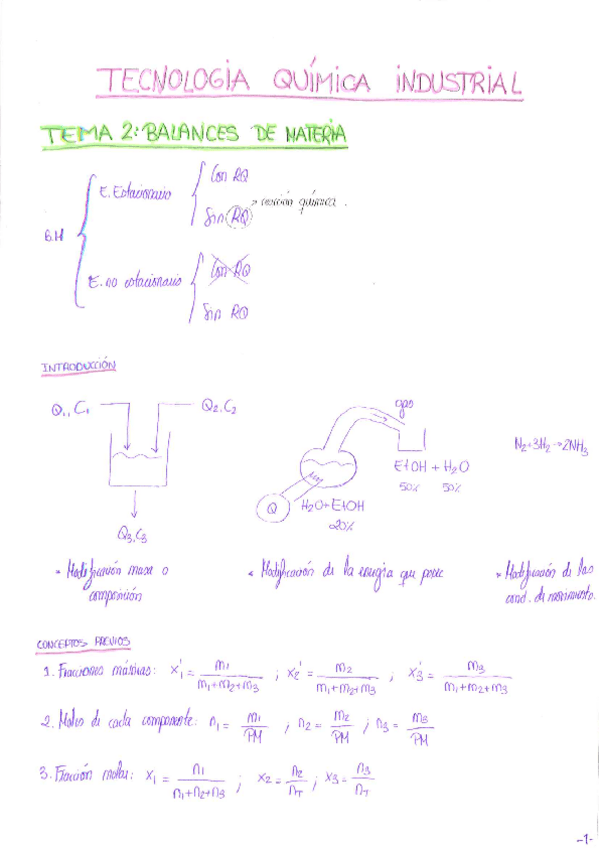 TECNOLOGIA QUÍMICA INDUSTRIAL
TEMA 2: BALANCES DE MATERIA
B.M
E. Estacionario
Con RQ
Sin RQ → reacción química.
E. no estacionario
Con RQ
Sin RQ
INTRODUCCIÓN
Q1, C1
Q2, C2
Q3, C3
gas
EtOH + H2O
50% 50%
Q
H2O+EtOH
20%
N2+3H2→2NH3
Modificación masa o composición
Modificación de la energia que posee
Modificación de las cond. de movimiento.
CONCEPTOS PREVIOS
1. Fracciones másicas: x1' = m1/(m1+m2+m3) ; x2' = m2/(m1+m2+m3) ; x3' = m3/(m1+m2+m3)
2. Moles de cada componente: n1 = m1/PM ; n2 = m2/PM ; n3 = m3/PM
3. Fracción molar: x1 = n1/(n1+n2+n3) ; x2 = n2/nT ; x3 = n3/nT
-1-